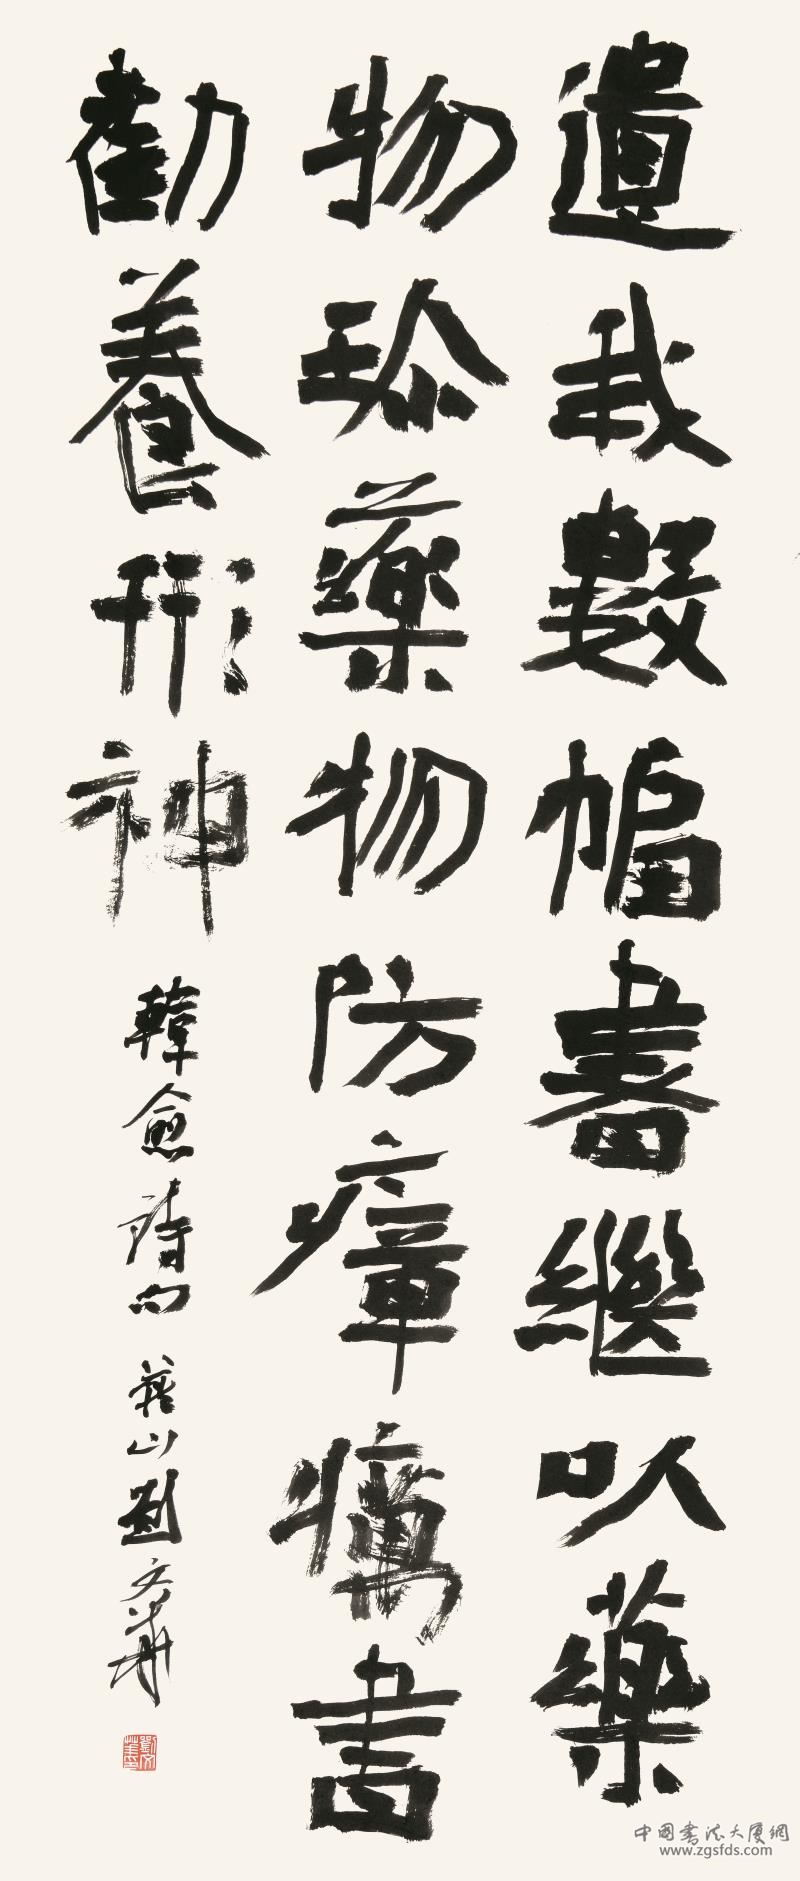 遺我數幅書繼以藥
物珎藥物防瘴癘書
勸養形神
韓愈詩句 蘇山劉文華
劉文華
中国书法大厦网
www.zgsfds.com